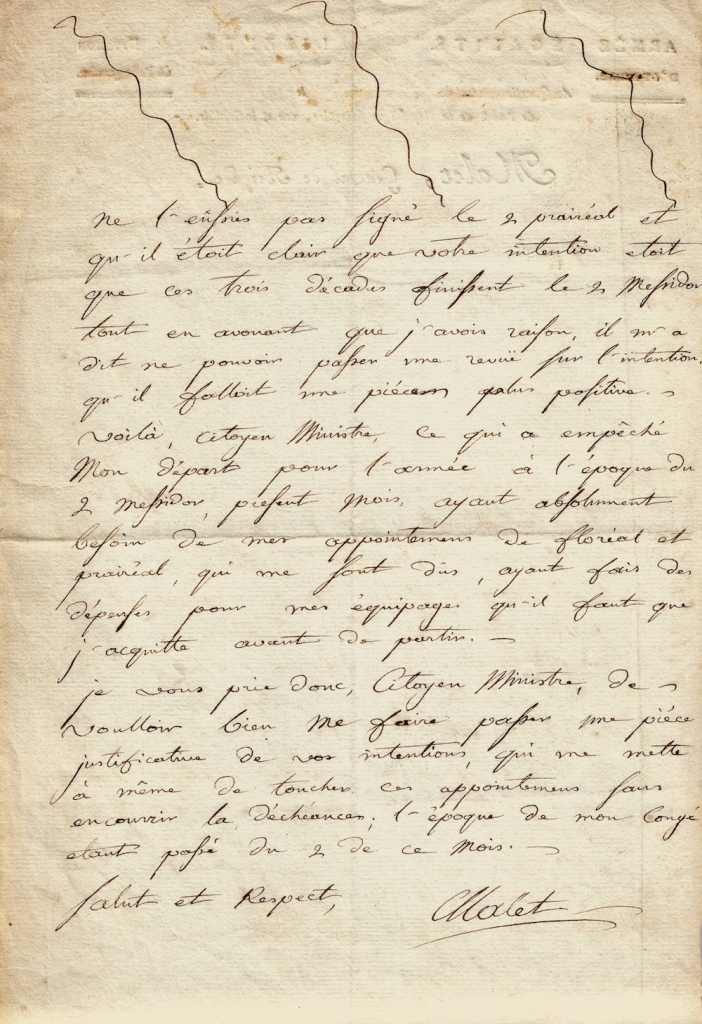 ne l'eussies pas signé le 2 prairéal et
qu-il étoit clair que votre intention etoit
que ces trois décades finissent le 2 Messidor
tout en avouant que j'avois raison, il m'a
dit ne pouvoir passer une revüe sur l'intention,
qu-il falloit une piéce plus positive. -
voilà, Citoyen Ministre, ce qui a empêché
Mon départ pour l'armée à l'époque du
2 Messidor, present Mois, ayant absolument
besoin de mes appointemens de floréal et
prairéal, qui me sont dus, ayant fais des
dépenses pour mes équipages qu-il faut que
j'acquitte avant de partir. -
je vous prie donc, Citoyen Ministre, de -
voulloir bien me faire passer une piéce
justificative de vos intentions, qui me mette
à même de toucher ces appointemens sans
encourrir la déchéances; l'époque de mon Congé
etant passé du 2 de ce Mois. -
Salut et Respect,
Malet